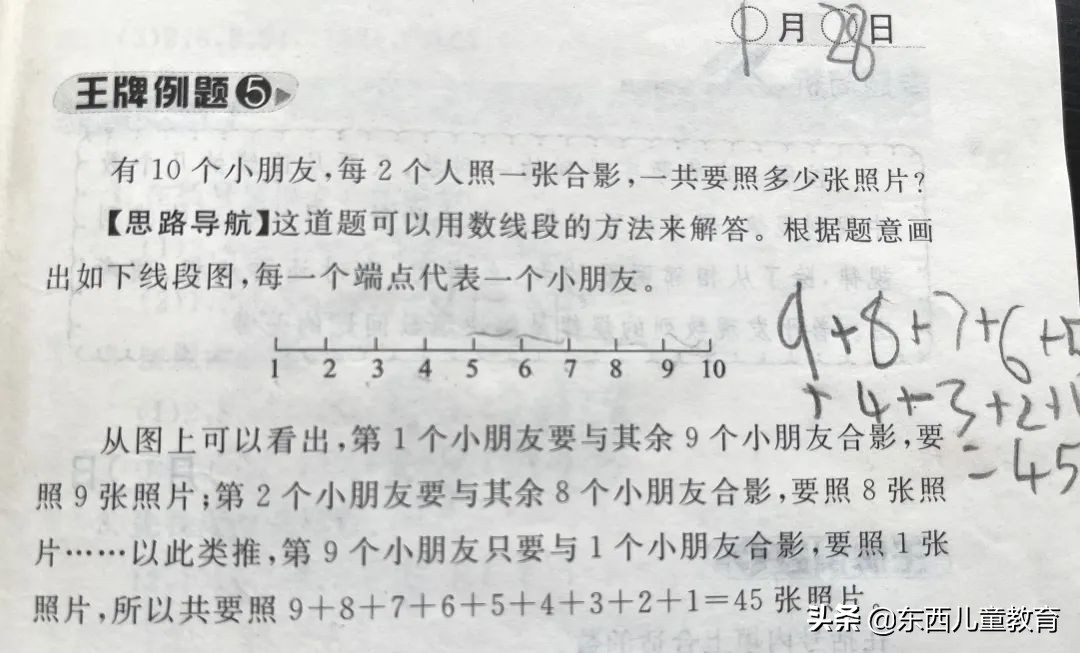 1月28日
王牌例题❺
有10个小朋友,每2个人照一张合影,一共要照多少张照片?
【思路导航】这道题可以用数线段的方法来解答。根据题意画
出如下线段图,每一个端点代表一个小朋友。
1 2 3 4 5 6 7 8 9 10
9+8+7+6+5
+4+3+2+1
=45
从图上可以看出,第1个小朋友要与其余9个小朋友合影,要
照9张照片;第2个小朋友要与其余8个小朋友合影,要照8张照
片……以此类推,第9个小朋友只要与1个小朋友合影,要照1张
照片,所以共要照9+8+7+6+5+4+3+2+1=45张照片。
头条 @东西儿童教育